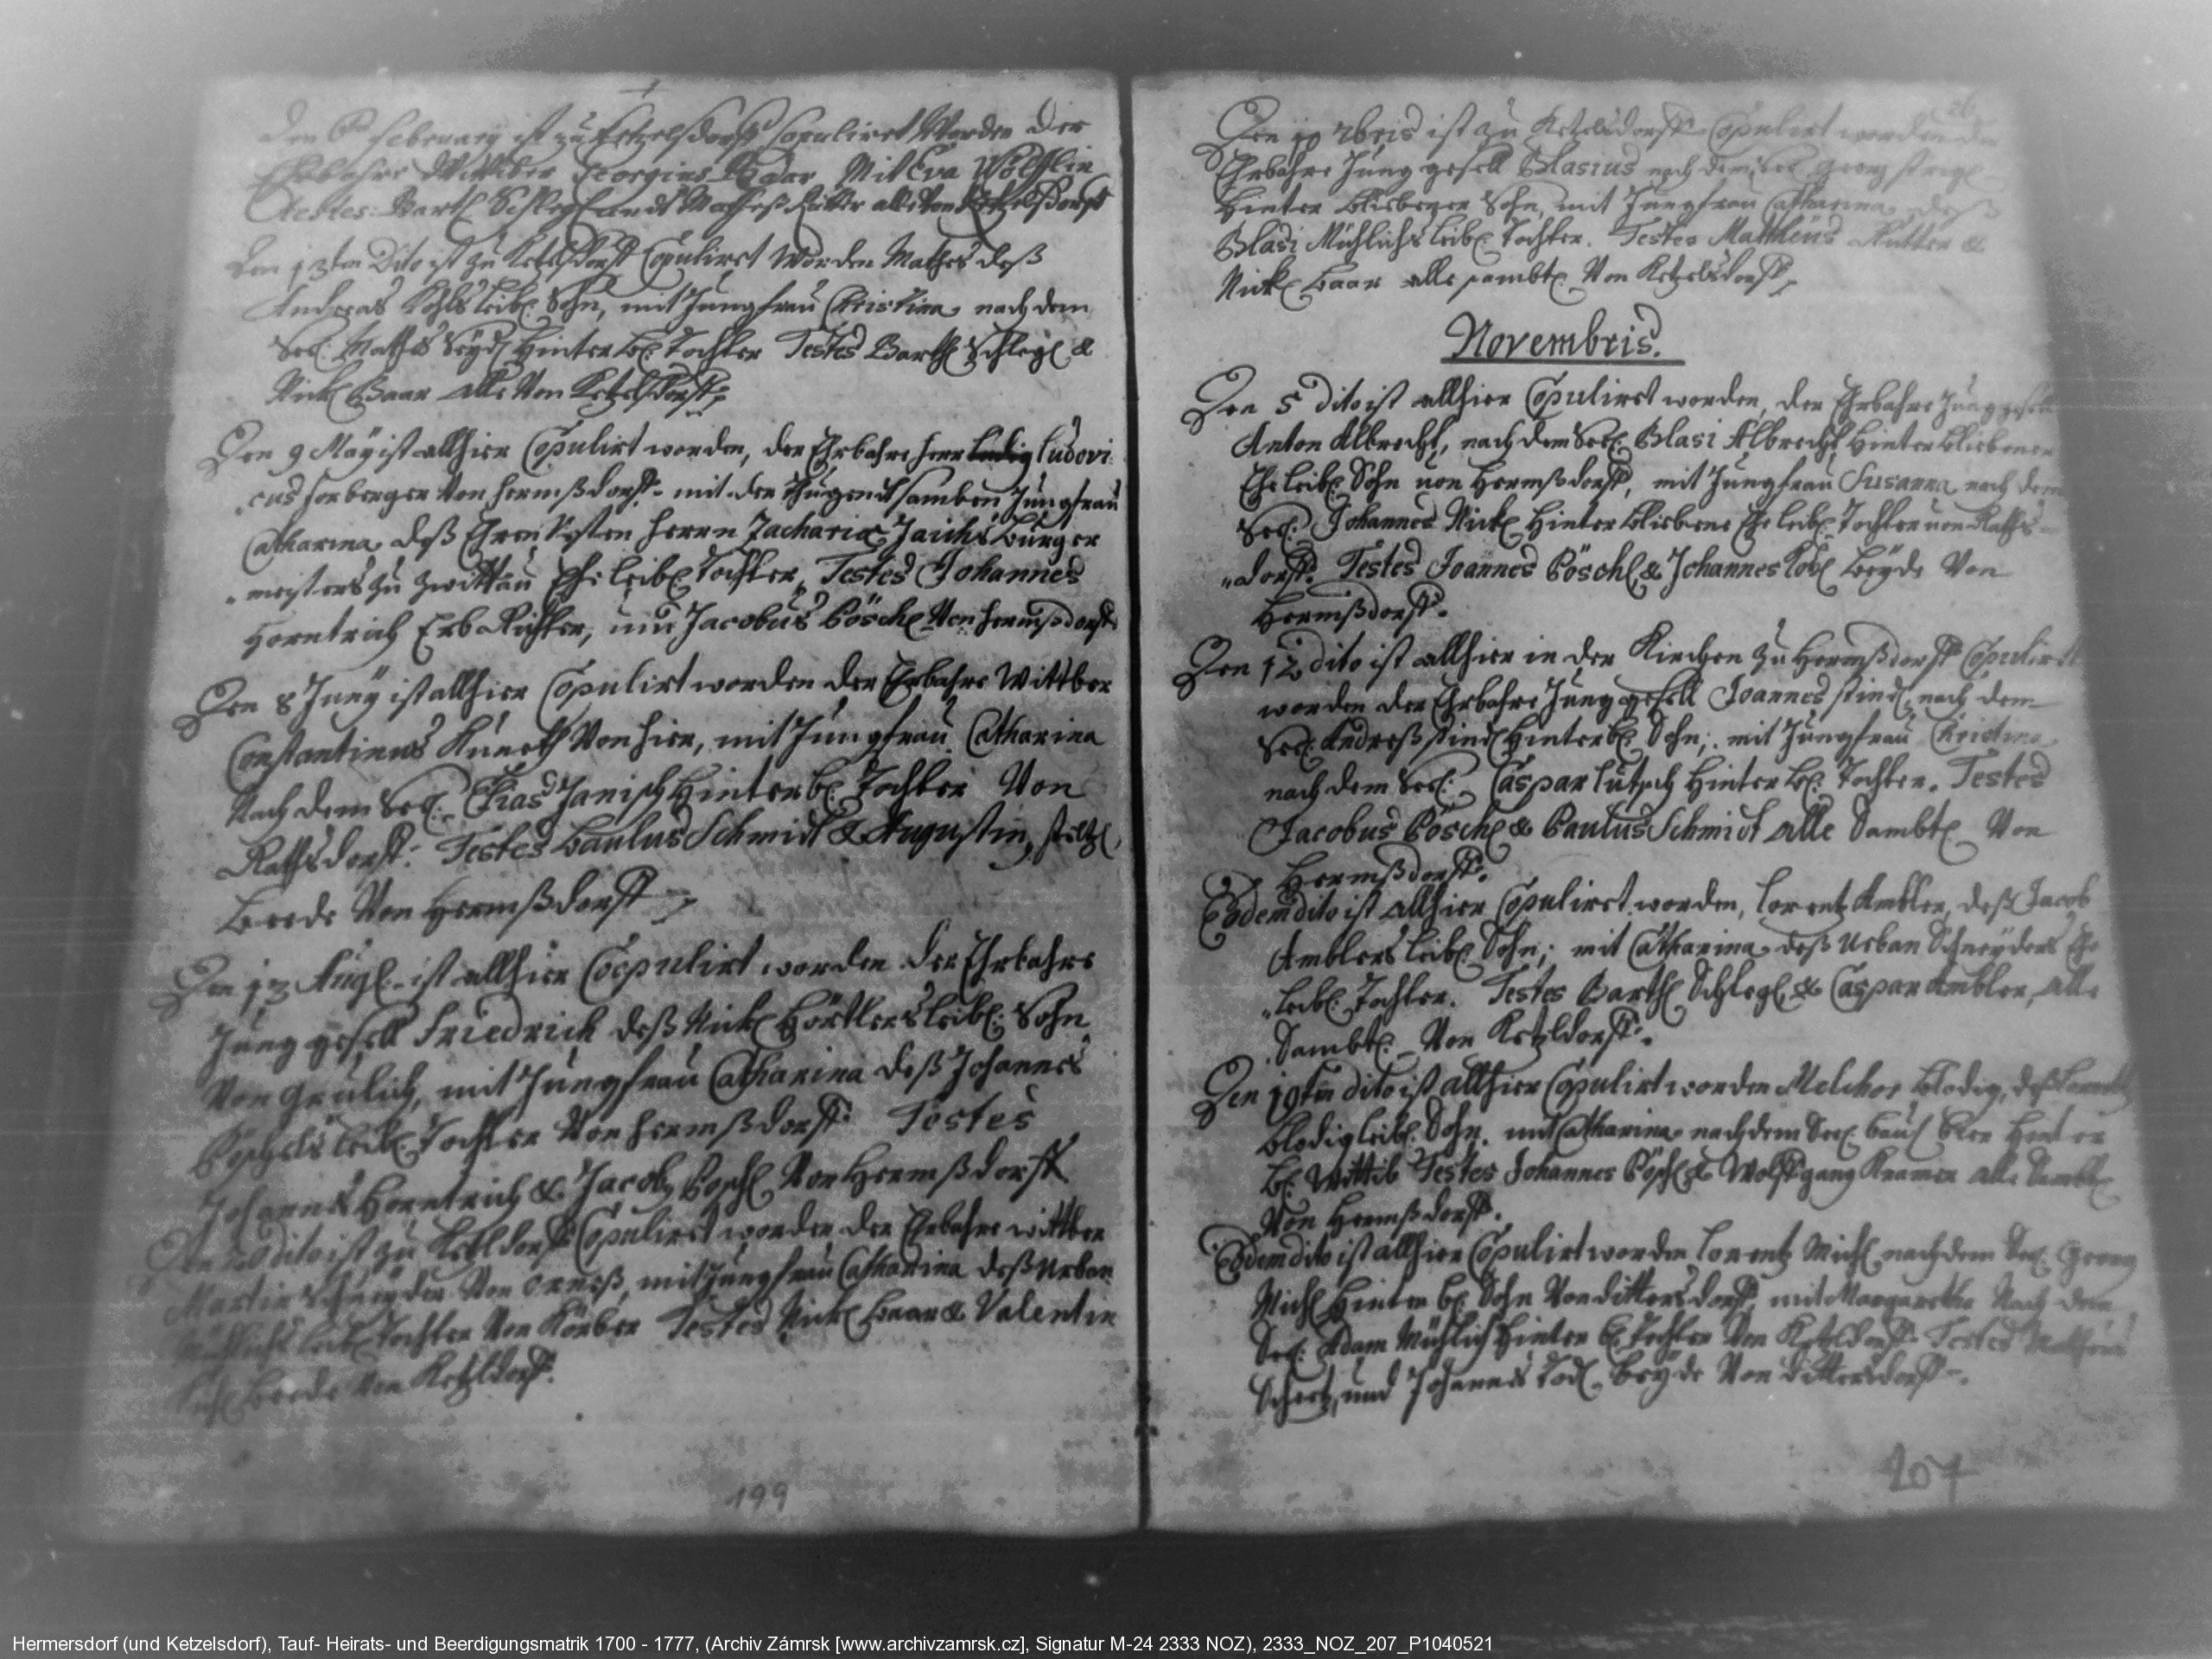 Den 6 February ist zu Ketzelsdorff Copuliret Worden der
Ehrbahre Wittiber Georgius Mit Eva Wölfflin
Testes: Barth Schlegl und Mathes Rutter alle Von Ketzelsdorff
Den 13ten Dito ist zu Ketzelsdorff Copuliret Worden Mathes deß
Andreas Leibl: Sohn, mit Jungfrau Christina nach dem
Seel: Mathes Hinterbl: Tochter Testes Barthl Schlegl &
Nickl Baar alle Von Ketzelsdorff
Den 9 May ist allhier Copulirt worden, der Ehrbahre Herr Ludovi-
cus Forberger Von Hermßdorff mit der Tugendsamben Jungfrau
Catharina deß Ehren Vesten Herrn Zacharia Jaichs Bürger
meisters zu Zwittau Eheleibl Tochter, Testes Johannes
Horntrich Erb Richter, und Jacobus Pöschl Von Hermßdorff
Den 8 Juny ist allhier Copulirt worden der Ehrbahre Wittber
Constantinus Kuneth Von hier, mit Jungfrau Catharina
Nach dem Seel: Elias Janisch Hinterbl: Tochter Von
Rathsdorff: Testes Paulus Schmidt & Augustin
beede Von Hermßdorff
Den 13 Aug: ist allhier Coopulirt worden der Ehrbahre
Junggesell Friedrich deß Nickl Hörtlers leibl: Sohn
Von Grulich, mit Jungfrau Catharina deß Johannes
Pöschels leibl Tochter Von Hermßdorff: Testes
Johannes Horntrich & Jacob Pöschl Von Hermßdorff
Den 20 dito ist zu Ketzldorff Copuliret worden der Ehrbahre wittber
Martin Schneyder Von mit Jungfrau Catharina deß Urban
Mühlichs leibl Tochter Von Körber Testes Nickl Baar & Valentin
beede Von Ketzldorff.
199
Den 10 7bris ist zu Ketzelsdorff Copulirt worden der
Ehrbahre Junggesell Blasius nach dem Seel Georg
Hinterbliebener Sohn, mit Jungfrau Catharina deß
Blasi Mühlichs leibl: Tochter. Testes Mattheus Rutter &
Nickl Baar alle sambtl Von Ketzelsdorff
Novembris.
Den 5 dito ist allhier Copuliret worden, der Ehrbahre Junggesell
Anton Albrecht, nach dem Seel: Blasi Albrecht Hinterbliebener
Eheleibl Sohn von Hermßdorff, mit Jungfrau Susanna nach dem
Seel: Johannes Nickl Hinterbliebene Eheleibl Tochter von Raths-
dorff: Testes Joannes Pöschl & Johannes beyde Von
Hermßdorff.
Den 12 dito ist allhier in der Kirchen zu Hermßdorff Copulirt
worden der Ehrbahre Junggesell Joannes nach dem
Seel: Andreß Hinterbl: Sohn, mit Jungfrau Christina
nach dem Seel: Caspar Lutsch Hinterbl: Tochter. Testes
Jacobus Pöschl & Paulus Schmidt alle Sambtl Von
Hermßdorff.
Eodem dito ist allhier Copuliret worden, Lorentz Ambler, deß Jacob
Amblers leibl: Sohn; mit Catharina deß Urban Schneyders Ehe
leibl: Tochter. Testes Barthl Schlegl & Caspar Ambler, alle
Sambtl Von Ketzldorff.
Den 19ten dito ist allhier Copulirt worden Melchor Blodig, deß
Blodig leibl: Sohn, mit Catharina nach dem Seel: Hinter
bl: Wittib Testes Johannes Pöschl & Wolffgang Kramer alle Sambtl
Von Hermßdorff.
Eodem dito ist allhier Copulirt worden Lorentz Michl nach dem Seel: Georg
Michl Hinterbl: Sohn Von Dittersdorff, mit Margaretha Nach dem
Seel: Adam Mühlich Hinterbl: Tochter Von Ketzldorff: Testes
und Johannes beyde Von Dittersdorff.
207
Hermersdorf (und Ketzelsdorf), Tauf- Heirats- und Beerdigungsmatrik 1700 - 1777, (Archiv Zámrsk [www.archivzamrsk.cz], Signatur M-24 2333 NOZ), 2333_NOZ_207_P1040521